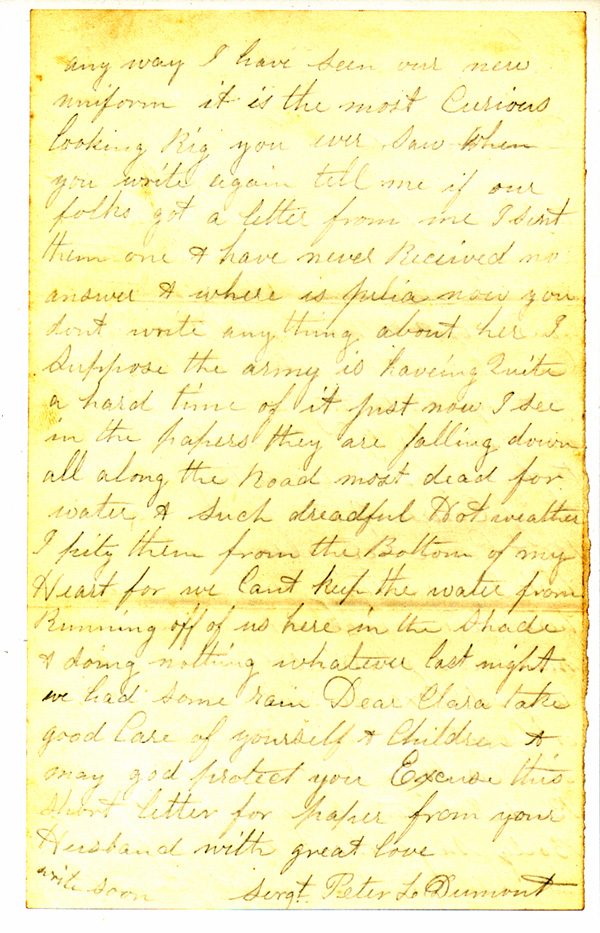 any way I have seen our new
uniform it is the most Curious
looking Rig you ever saw When
you write again tell me if our
folks got a letter from me I sent
them one & have never Received no
answer & where is julia now you
dont write any thing about her I
suppose the army is haveing Quite
a hard time of it just now I see
in the papers they are falling down
all along the Road most dead for
water & such dreadful Hot weather
I pity them from the Bottom of my
Heart for we Cant keep the water from
Running off of us here in the shade
& doing nothing whatever last night
we had some rain Dear Clara take
good Care of yourself & Children &
may god protect you Excuse this
short letter for paper from your
Husband with great love
write soon Sergt. Peter L Dumont